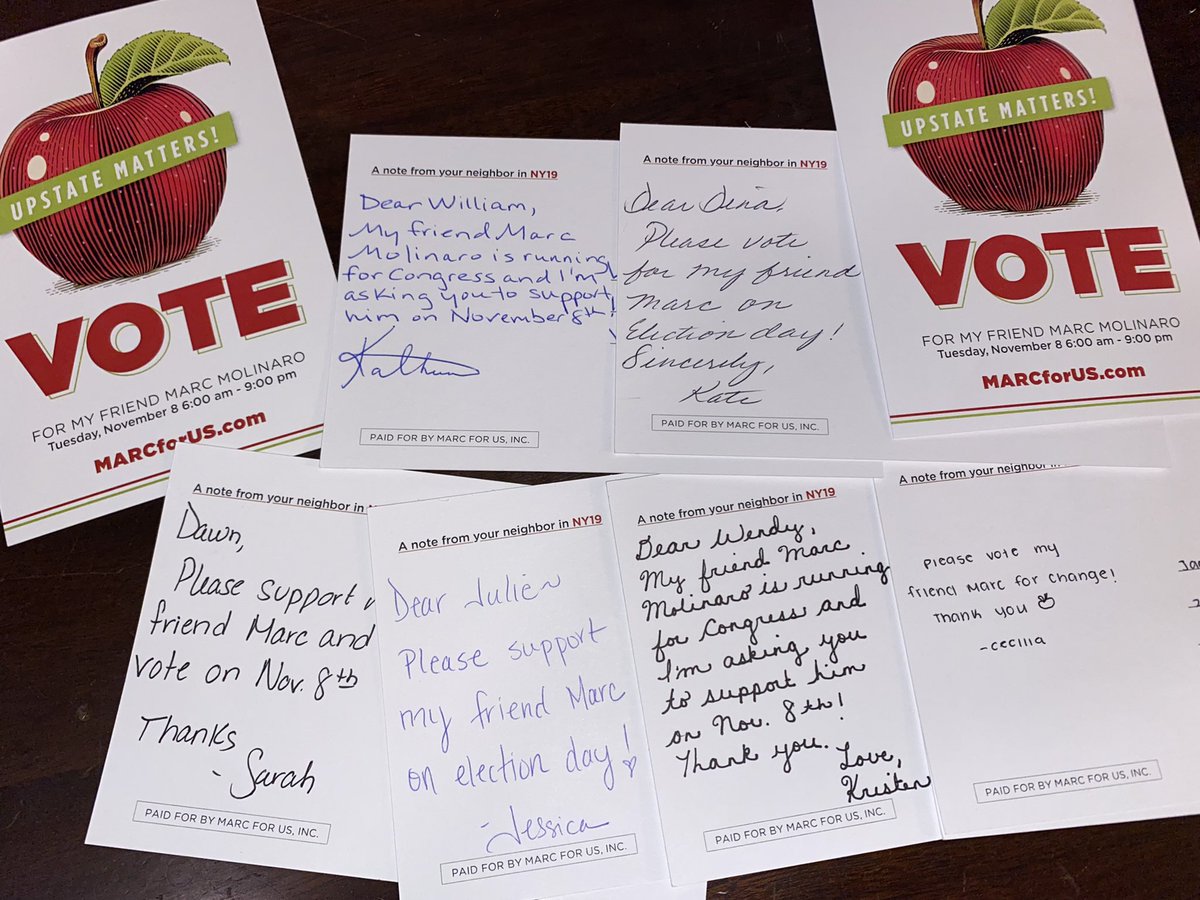 UPSTATE MATTERS!
VOTE
FOR MY FRIEND MARC MOLINARO
Tuesday, November 8 6:00 am - 9:00 pm
MARCforUS.com
A note from your neighbor in NY19
Dear William,
My friend Marc
Molinaro is running
for Congress and I'm
asking you to support
him on November 8th!
PAID FOR BY MARC FOR US, INC.
A note from your neighbor in NY19
Dear Dena,
Please vote
for my friend
Marc on
Election day!
Sincerly,
Kate
PAID FOR BY MARC FOR US, INC.
UPSTATE MATTERS!
VOTE
FOR MY FRIEND MARC MOLINARO
Tuesday, November 8 6:00 am - 9:00 pm
MARCforUS.com
A note from your neighbor in
Dawn,
Please support
friend Marc and
vote on Nov. 8th
Thanks
- Sarah
PAID FOR BY MARC FOR US, INC.
A note from your neighbor in NY19
Dear Julie~
Please support
my friend Marc
on election day!
-Jessica
PAID FOR BY MARC FOR US, INC.
A note from your neighbor in NY19
Dear Wendy,
My friend Marc
Molinaro is running
for Congress and
I'm asking you
to support him
on Nov. 8th!
Thank you.
Love,
Kristen
PAID FOR BY MARC FOR US, INC.
A note from your neighbor in NY19
Please vote my
friend Marc for change!
Thank you
-cecilia
PAID FOR BY MARC FOR US, INC.